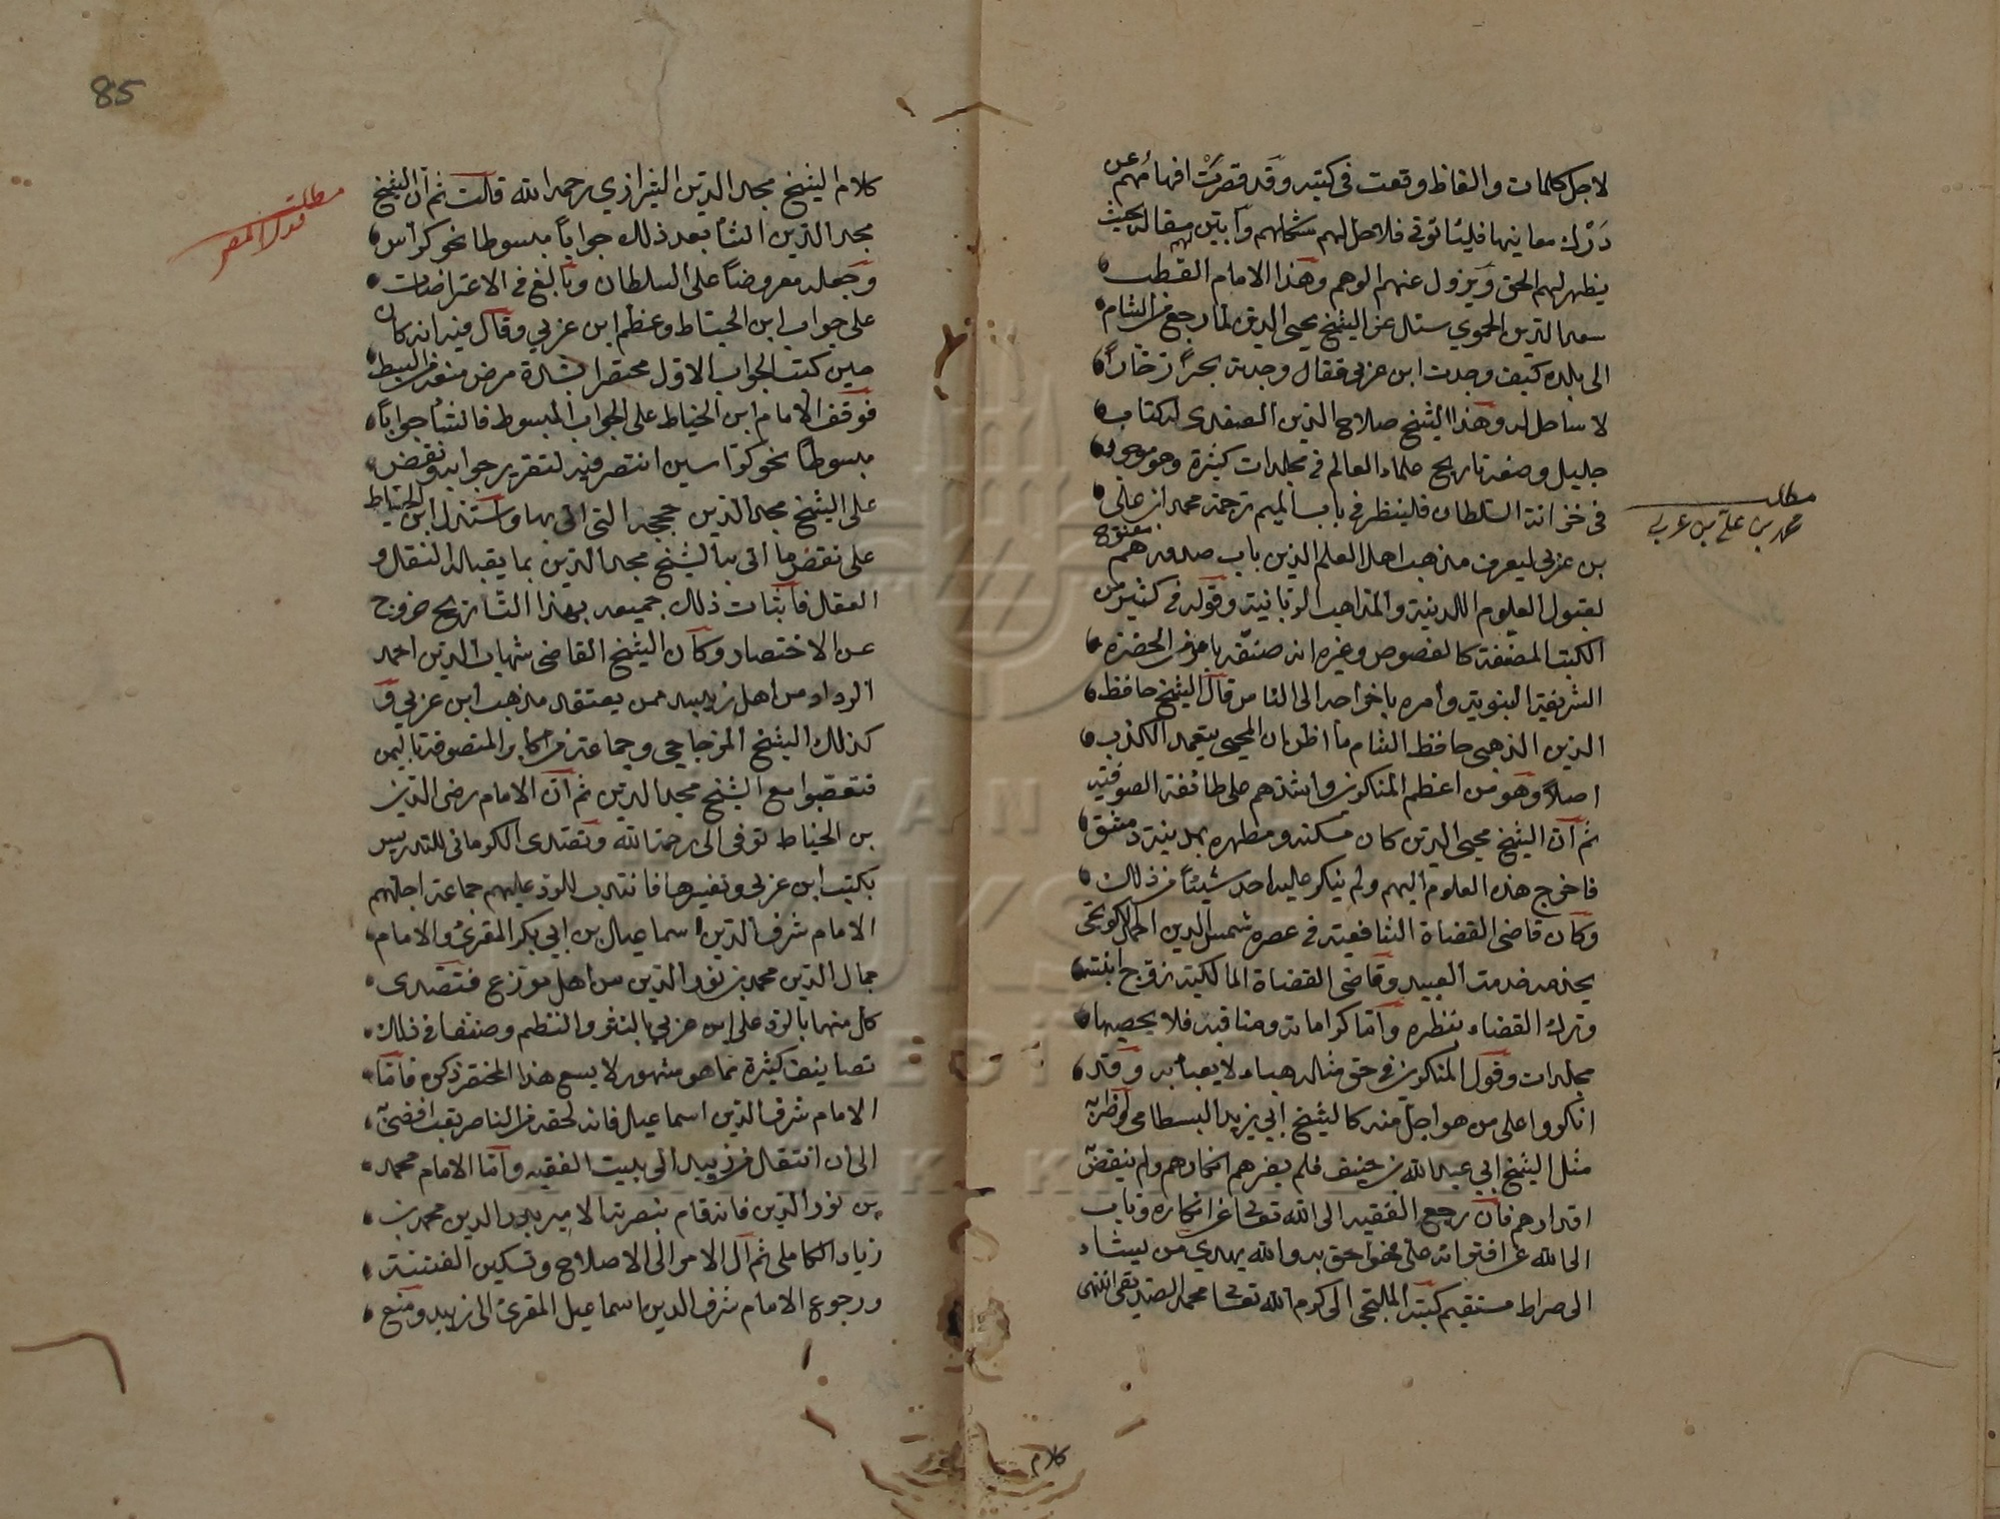 لاجل كلمات والفاظ وقعت في كتبه وقد قصرت افهامهم عن
درك معانيها فليأتوني فلاحل لهم مشكلهم وأبين لهم مقاله بحيث
يظهر لهم الحق ويزول عنهم الوهم وهذا الامام القطب
سعد الدين الحموي سئل عن الشيخ محيي الدين لما رجع من الشام
الى بلده كيف وجدت ابن عربي فقال وجدته بحراً زخاراً
لا ساحل له وهذا الشيخ صلاح الدين الصفدي له كتاب
جليل وصفه تاريخ علماء العالم في مجلدات كثيرة وهو موجود
في خزانة السلطان فلينظر في باب الميم ترجمة محمد ابن علي
بن عربي ليعرف مذهب اهل العلم الذين باب صدورهم مفتوح
لقبول العلوم اللدنية والمذاهب الربانية وقوله في كثير من
الكتب المصنفة كالفصوص وغيره انه صنفه بامر من الحضرة
الشريفة النبوية وامره باخراجه الى الناس قال الشيخ حافظ
الدين الذهبي حافظ الشام ما اظن ان المحيي يتعمد الكذب
اصلاً وهو من اعظم المنكرين واشدهم على طائفة الصوفية
ثم أن الشيخ محيي الدين كان مسكنه ومظهره بمدينة دمشق
فاخرج هذه العلوم اليهم ولم ينكر عليه احد شيئاً من ذلك
وكان قاضي القضاة الشافعية في عصره شمس الدين
يخدمه خدمة العبيد وقاضي القضاة المالكية زوجه ابنته
وترك القضاء بنظره وأما كراماته ومناقبه فلا يحصيها
مجلدات وقول المنكرين في حق مثله هباء لا يعبأ به وقد
انكروا على من هو اجل منه كالشيخ ابي يزيد البسطامي
مثل الشيخ ابي عبد الله بن خفيف فلم يضرهم انكارهم ولم ينقص
اقدارهم فان رجع الفقيه الى الله تعالى عن انكاره وتاب
الى الله عن افترائه على حق به والله يهدي من يشاء
الى صراط مستقيم كتبه الملتجي الى كرم الله تعالى محمد الصديقي انتهى
كلام
مطلب
محمد بن علي بن عربي
85
مطلب
كلام الشيخ مجد الدين الشيرازي رحمه الله قالت ثم أن الشيخ
مجد الدين انشأ بعد ذلك جواباً مبسوطا نحو كراس
وجعله معروضاً على السلطان وبالغ في الاعتراضات
على جواب ابن الخياط وعظم ابن عربي وقال فيه انه كان
حين كتب الجواب الاول مختصرا لشدة مرض منعه من البسط
فوقف الامام ابن الخياط على الجواب المبسوط فانشأ جواباً
مبسوطاً نحو كراسين انتصر فيه لتقرير جوابه ونقض
على الشيخ مجد الدين حججه التي اتى بها واستدل ابن الخياط
على نقض ما اتى به الشيخ مجد الدين بما يقبله النقل و
العقل فاثبات ذلك جميعه بهذا التاريخ خروج
عن الاختصار وكان الشيخ القاضي شهاب الدين احمد
الرداد من اهل زبيد ممن يعتقد مذهب ابن عربي و
كذلك الشيخ المزجاجي وجماعة من اكابر المتصوفة باليمن
فتعصبوا مع الشيخ مجد الدين ثم أن الامام رضي الدين
بن الخياط توفى الى رحمة الله وتصدى الكرماني للتدريس
بكتب ابن عربي وغيرها فانتدب للرد عليهم جماعة اجلهم
الامام شرف الدين اسماعيل بن ابي بكر المقرئ والامام
جمال الدين محمد بن نور الدين من اهل موزع فتصدى
كل منهما بالرد على ابن عربي بالنثر والنظم وصنفا في ذلك
تصانيف كثيرة مما هو مشهور لا يسع هذا المختصر ذكره فأما
الامام شرف الدين اسماعيل فانه لحقه من الناصر تعب افضى
الى ان انتقل من زبيد الى بيت الفقيه وأما الامام محمد
بن نور الدين فانه قام بنصرته الامير بدر الدين محمد بن
زياد الكاملي ثم آل الامر الى الاصلاح وتسكين الفتنة
ورجوع الامام شرف الدين اسماعيل المقرئ الى زبيد ومنع